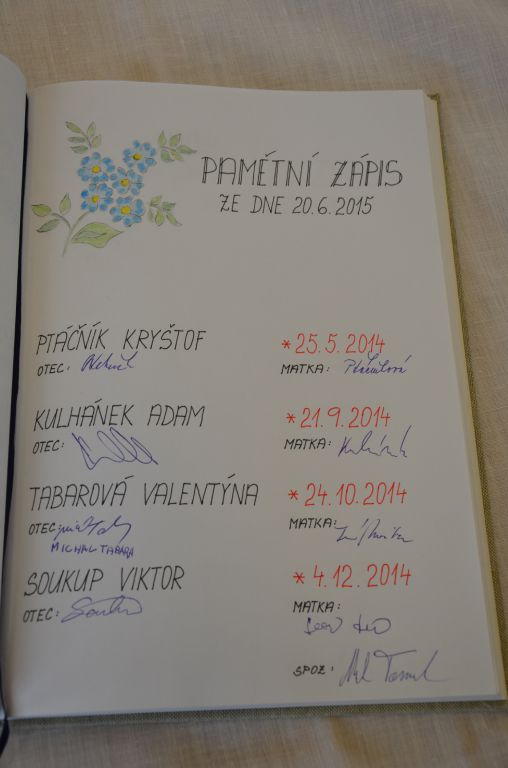 PAMĚTNÍ ZÁPIS
ZE DNE 20.6.2015
PTÁČNÍK KRYŠTOF *25.5.2014
OTEC: MATKA: Ptáčníková
KULHÁNEK ADAM *21.9.2014
OTEC: MATKA:
TABAROVÁ VALENTÝNA *24.10.2014
OTEC: MATKA:
MICHAL TABARA
SOUKUP VIKTOR *4.12.2014
OTEC: MATKA:
SPOZ: